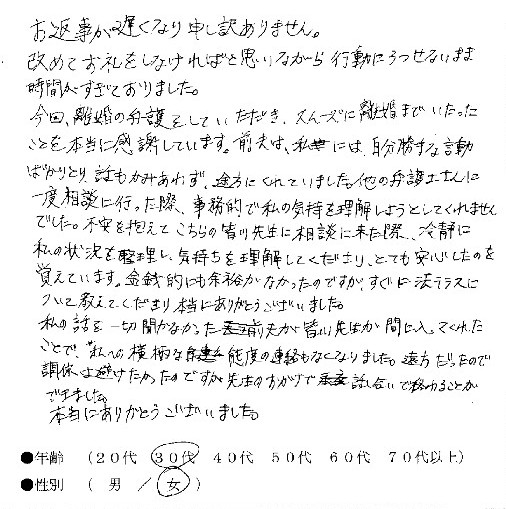 お返事が遅くなり申し訳ありません。
改めてお礼をしなければと思いながら行動にうつせないまま
時間がすぎておりました。
今回、離婚の弁護をしていただき、スムーズに離婚までいたった
ことを本当に感謝しています。前夫は、私には、自分勝手な言動
ばかりとり話もかみあわず、途方にくれていました。他の弁護士さんに
一度相談に行った際、事務的で私の気持を理解しようとしてくれません
でした。不安を抱えてこちらの皆川先生に相談に来た際、冷静に
私の状況を整理し、気持ちを理解してくださり、とても安心したのを
覚えています。金銭的にも余裕がなかったのですが、すぐに法テラスに
ついて教えてくださり本当にありがとうございました。
私の話を一切聞かなかった前夫が皆川先生が間に入ってくれた
ことで、私への横柄な態度の連絡もなくなりました。遠方だったので
調停は避けたかったのですが先生のおかげで話し合いで終わることが
できました。
本当にありがとうございました。
●年齢 （20代 30代 40代 50代 60代 70代以上）
●性別 （ 男 ／ 女 ）